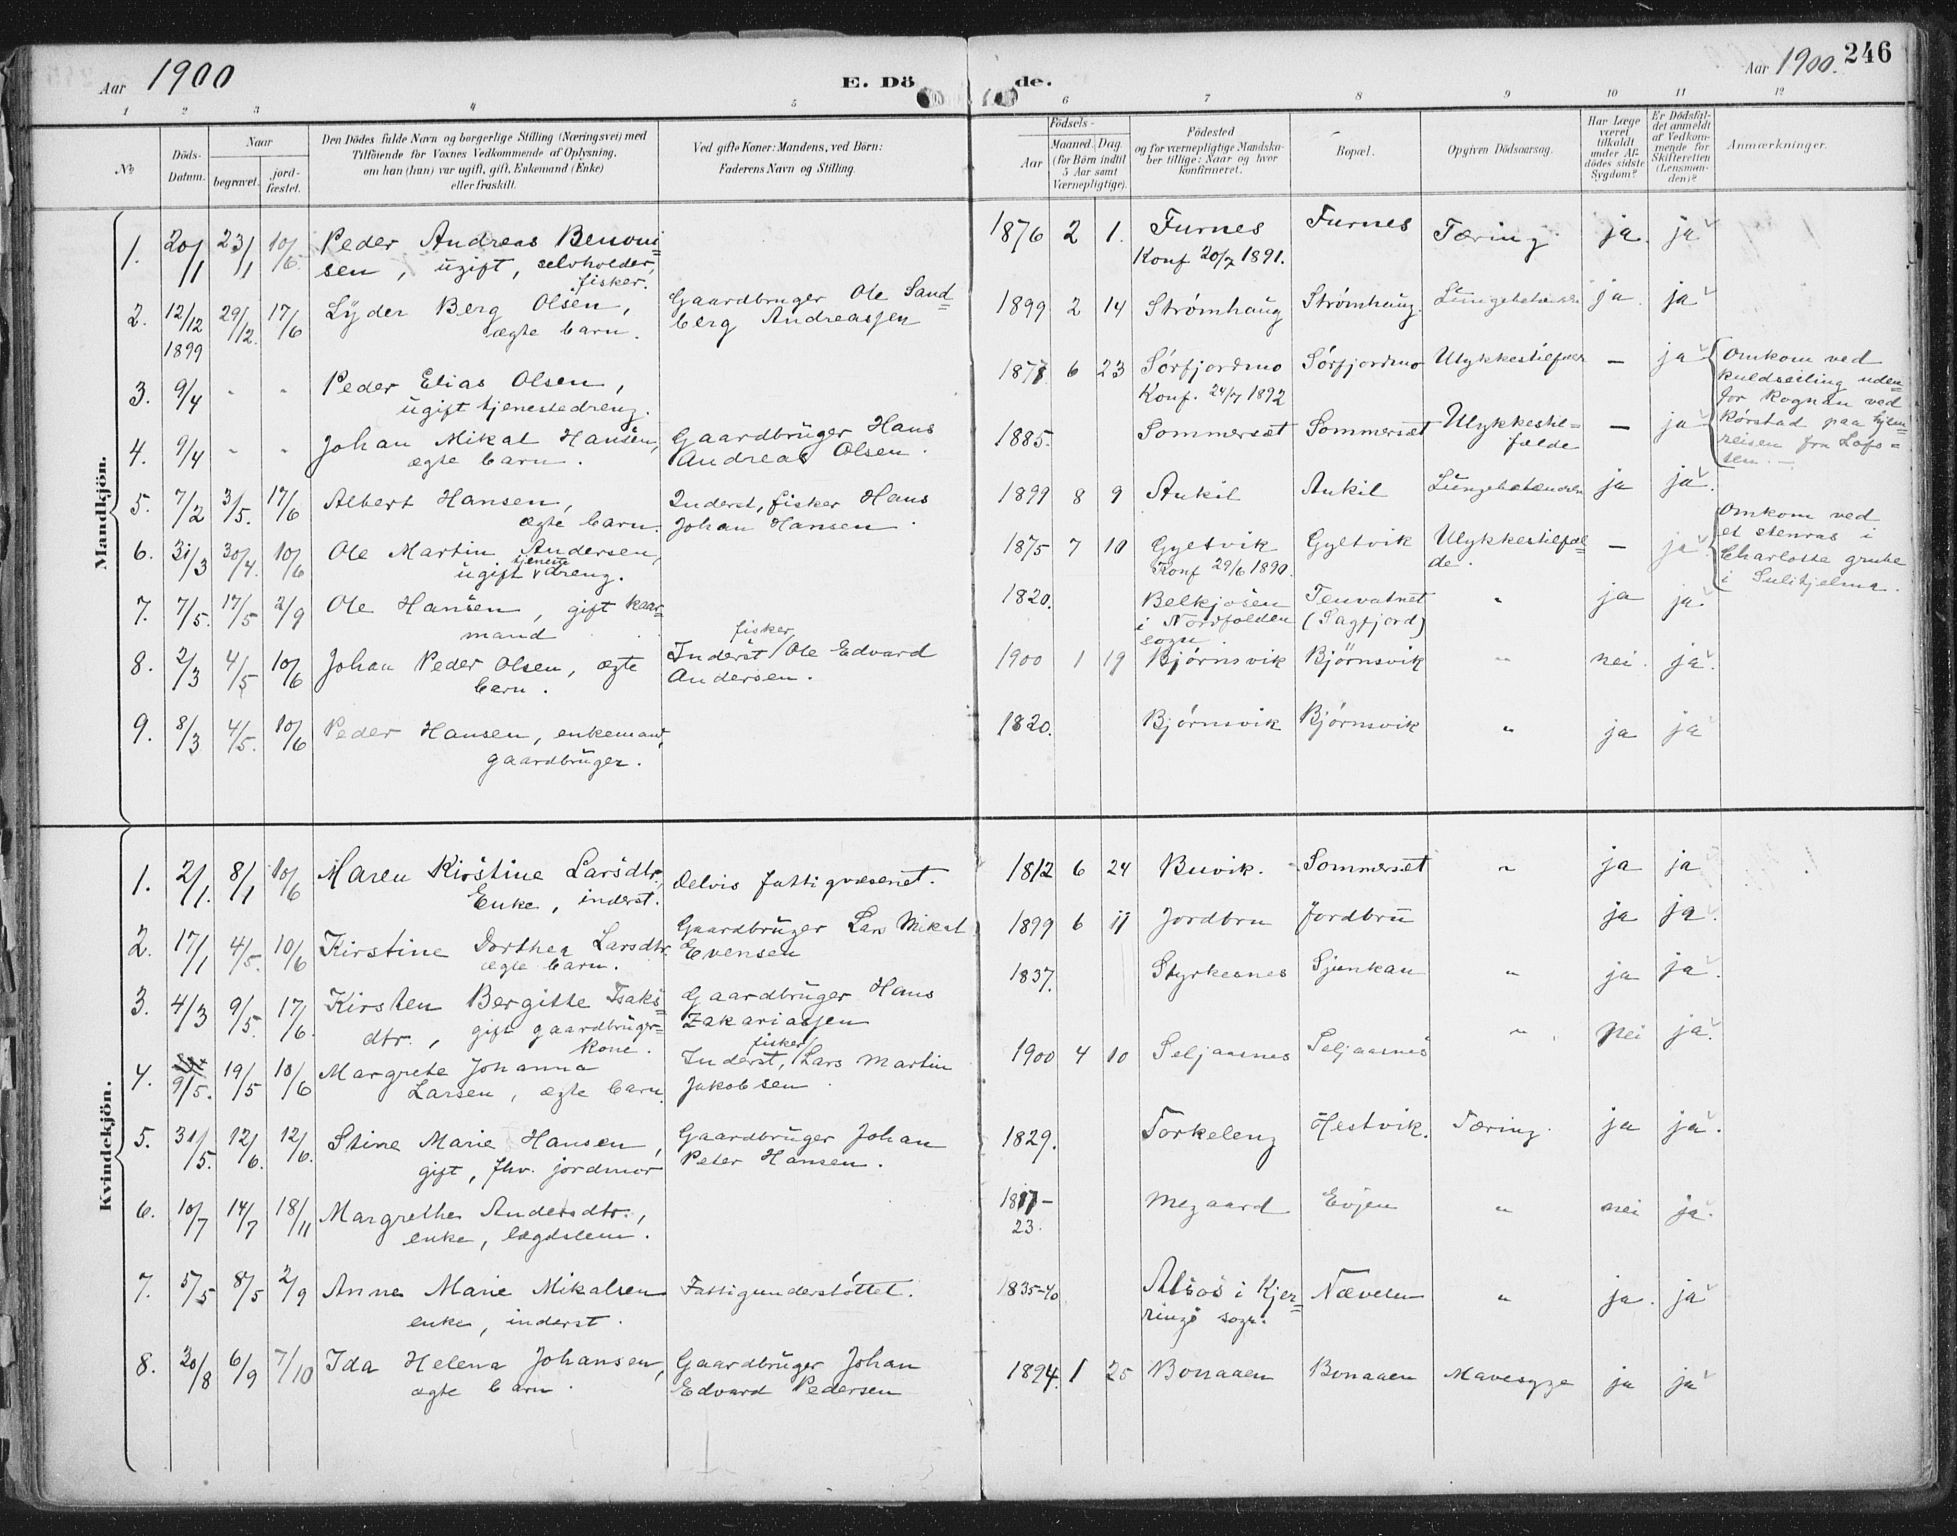 246
Aar 1900
E. Dö de.
Aar 1900.
1 2 3 4 5 6 7 8 9 10 11 12
№
Döds-Datum.
Naar
begravet.
jord-fæstet.
Den Dödes fulde Navn og borgerlige Stilling (Næringsvei) med
Tilföiende for Voxnes Vedkommende af Oplysning,
om han (hun) var ugift, gift, Enkemand (Enke)
eller fraskilt.
Ved gifte Koner: Mandens, ved Börn:
Faderens Navn og Stilling.
Födsels-
Aar
Maaned. Dag.
(for Börn indtil
5 Aar samt
Værnepligtige).
Födested
og for værnepligtige Mandska-
ber tillige: Naar og hvor
konfirmeret.
Bopæl.
Opgiven Dödsaarsag.
Har Læge
været
tilkaldt
under Af-
dödes sidste
Sygdom?
Er Dödsfal-
det anmeldt
af Vedkom-
mende for
Skifteretten
(Lensman-
den)?
Anmærkninger.
Mandkjön.
1. 20/1 23/1 10/6 Peder Andreas Benoni- 1876 2 1. Furnes Furnes Tæring ja. ja
sen, ugift, selvholder, Konf 20/7 1891.
fisker.
2. 12/12 29/12. 17/6 Lyder Berg Olsen, Gaardbruger Ole Sand- 1899 2 14 Strømhaug Strømhaug ja. ja
1899 ægte barn. berg Andreassen
3. 9/4 - - Peder Elias Olsen, 1878 6 23 Sörfjordmo Sörfjordmo Ulykkestilfælde — ja Omkom ved
ugift tjenestedreng. Konf. 24/7 1892 kuldseiling uden-
for Rognan ved
4. 9/4 - - Johan Mikal Hansen, Gaardbruger Hans 1885. Sommerset Sommerset Ulykkestil- — ja Rörstad paa hjem-
ægte barn. Andreas Olsen. fælde reisen fra Lofo-
ten. —
5. 7/2 3/5. 17/6 Albert Hansen, Inderst, fisker Hans 1899 8 9 Ankil Ankil Lungebetændelse ja ja.
ægte barn. Johan Hansen.
6. 31/3 30/4. 10/6 Ole Martin Andersen, 1875 7 10 Gyltvik Gyltvik Ulykkestilfæl- — ja Omkom ved
ugift tjenestedreng. Konf 29/6 1890. de. et stenras i
Charlotte grube
i Sulitjelma.
7. 7/5. 17/5 2/9 Ole Hansen, gift kaar- 1820. Belkjosen Tenvatnet " ja ja
mand i Nordfolden (Sagfjord)
sogn.
8. 2/3 4/5 10/6 Johan Peder Olsen, ægte Inderst / fisker Ole Edvard 1900 1 19 Bjørnsvik Bjørnsvik " nei. ja.
barn. Andersen.
9. 8/3 4/5. 10/6 Peder Hansen, enkemand, 1820. Bjørnsvik Bjørnsvik " ja ja
gaardbruger.
Kvindekjön.
1. 2/1. 8/1 10/6 Maren Kirstine Larsdtr., delvis fattigvæsenet. 1812 6 24 Buvik. Sommerset " ja ja
Enke, inderst.
2. 17/1 4/5. 10/6 Kirstine Dorthea Larsdtr. Gaardbruger Lars Mikal 1899 6 11 Jordbru Jordbru ja ja.
ægte barn. Evensen
3. 4/3 9/5. 17/6. Kirsten Bergitte Isaks- Gaardbruger Hans 1837. Styrkesnes Sjunkan " ja ja.
dtr., gift gaardbruger- Zakariassen
kone.
4. 9/5. 19/5 10/6 Margrete Johanna Inderst, / fisker Lars Martin 1900 4 10 Seljaasnes Seljaasnes " nei ja.
Larsen, ægte barn. Jakobsen
5. 31/5. 12/6. 12/6. Stine Marie Hansen, Gaardbruger Johan 1829. Torkeleng Hestvik. Tæring. ja ja.
gift, fhv. jordmor Peter Hansen.
6. 10/7 14/7 18/11 Margrethe Andersdtr., 1817- Megaard Evjen " nei ja.
enke, lægdslem. 23.
7. 5/5 8/5 2/9 Anne Marie Mikalsen Fattigunderstöttet. 1835-40 Alsos i Kjer- Nævelsen " ja. ja
enke, inderst. ringö sogn.
8. 30/8 6/9 7/10 Ida Helena Johansen, Gaardbruger Johan 1894. 1 25 Bonaaen Bonaaen Mavesyge ja ja
ægte barn. Edvard Pedersen